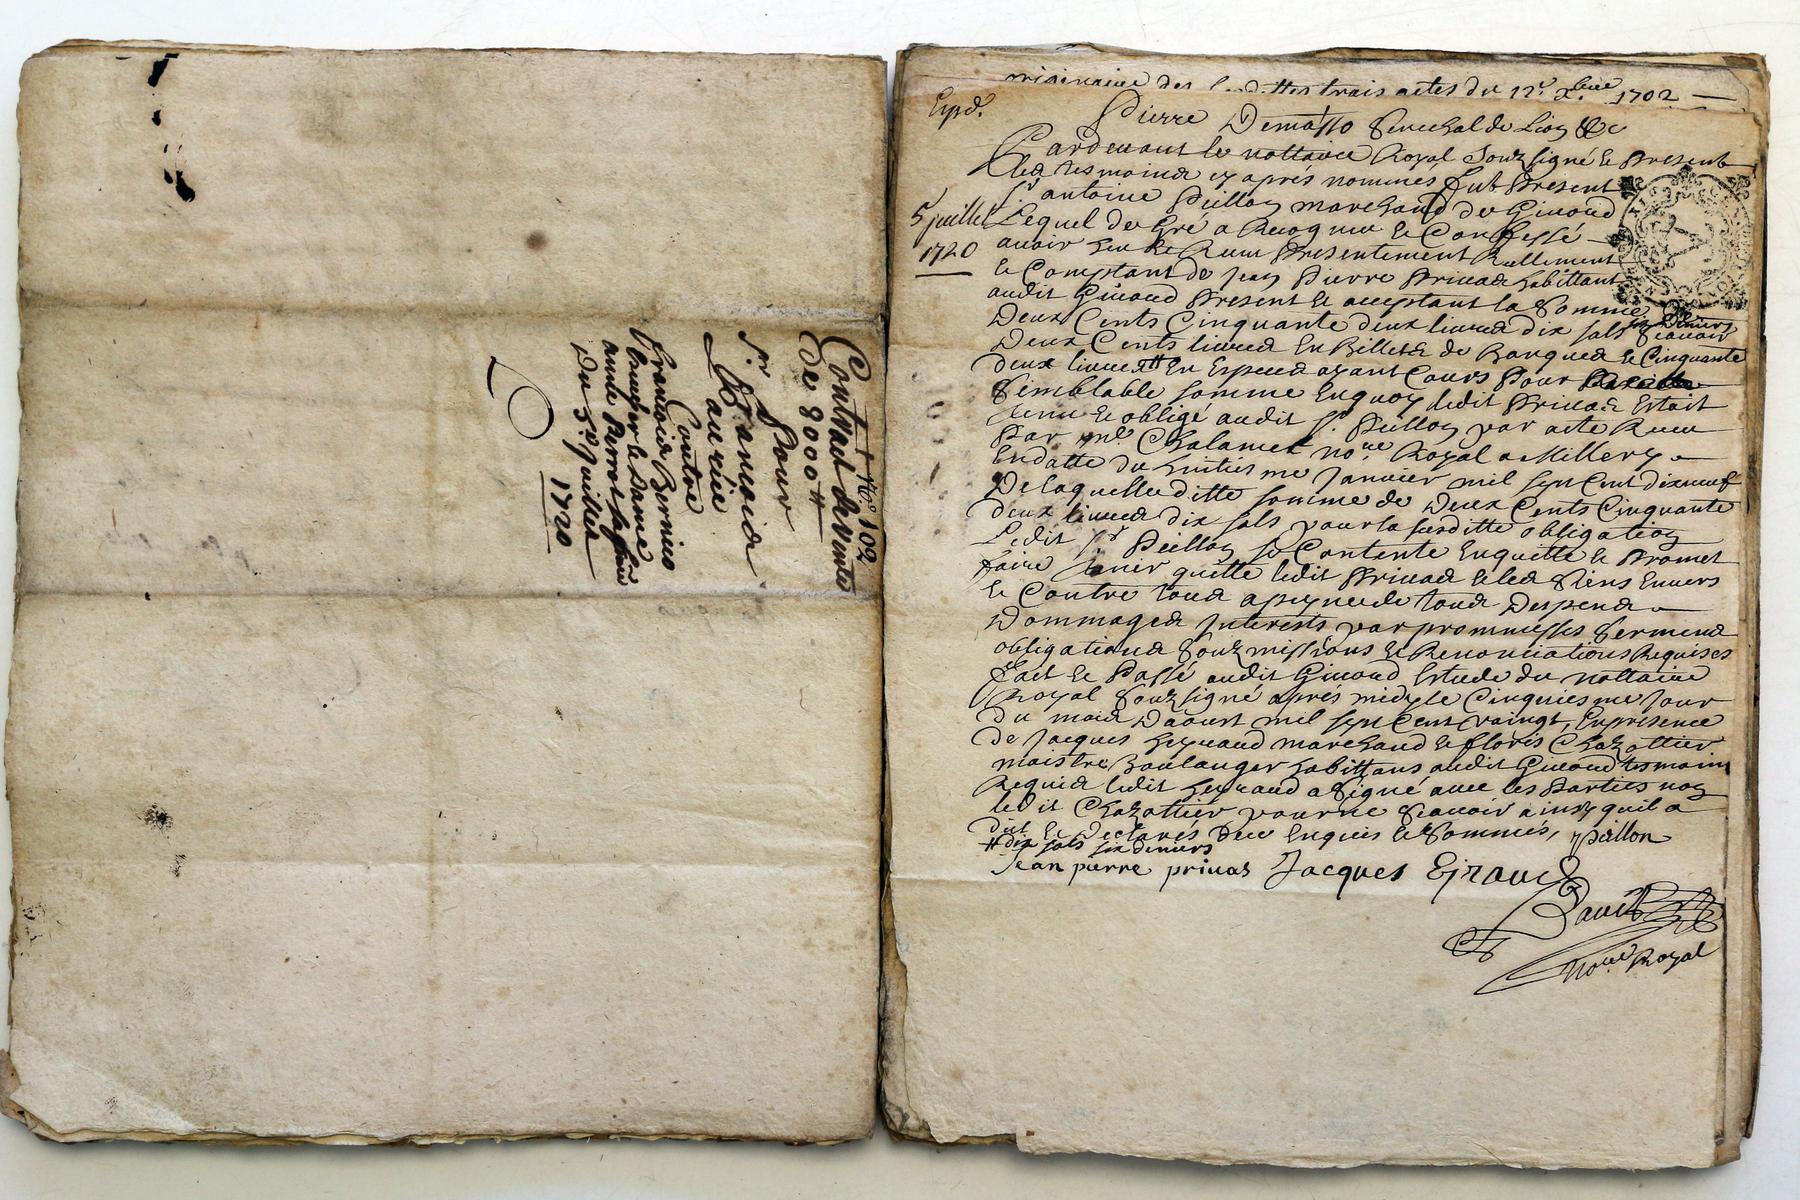 + No. 102
Contract de vente
De 8000 tt
Pour
Sr François
aurée
Contre
François Bernico
anne Perrot
Du 5e Juillet
1720
originaire des trois actes du 12e Xbre 1702
Expd.
Pierre Demasso Senechal de Lion &c
Pardevant le nottaire Royal Souzsigné et Present
les tesmoins cy aprés nommés fut Present
Sr antoine Peillon marchand de Giuord
5 juillet
1720
Lequel de Gré a Recognu et Confessé
auoir heu et Receu Presentement Reellement
et Comptant de Jean Pierre Priuas habittant
audit Giuord Present et acceptant la Somme de
Deux Cents Cinquante deux liures dix sols six Deniers Scauoir
Deux Cents liures En Billets de Banque et Cinquante
deux liures # En Especes ayant Cours Pour
Semblable somme Enquoy ledit Priuas Estoit
tenu et obligé audit Sr. Peillon par acte Receu
Par me Chalamel nore Royal a Millery
Endatte du huitiesme Januier mil sept Cent dixneuf
De laquelle ditte somme de Deux Cents Cinquante
deux liures dix sols pour la susditte obligation
Ledit Sr Peillon se Contente Enquitte et Promet
faire tenir quitte ledit Priuas et les Siens Enuers
et Contre tous a peyne de tous Despens
Dommages Interests par prommesses Serments
obligations Souzmissions et Renonciations Requises
fait et Passé audit Giuord Estude du nottaire
Royal Souzsigné aprés midy le Cinquiesme Jour
du mois Daoust mil sept Cent vaingt, En presence
de Jacques heyraud marchand et floris Chazottier
maistre Boulanger habittans audit Giuord tesmoins
Requis ledit heyraud a Signé auec les Parties non
ledit Chazottier pour ne Scauoir ainsy quil a
dit et Declaré De ce Enquis et Sommés, Peillon
# dix sols six deniers
Jean pierre priuas Jacques Ejraud
nore Royal